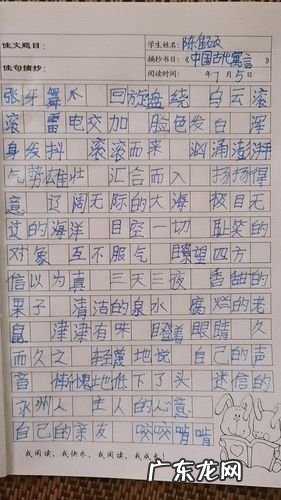 佳文题目：
学生姓名：陈
摘抄书目：《中国古代寓言》
佳句摘抄：
阅读时间： 年7月5日
张牙舞爪 回旋盘绕 白云滚
滚 雷电交加 脸色发白 浑
身发抖 滚滚而来 汹涌澎湃
气势雄壮 汇合而入 扬扬得
意 辽阔无际的大海 极目无
艾的海洋 目空一切 耻笑的
对象 互不服气 瞭望四方
信以为真 三天三夜 香甜的
果子 清洁的泉水 腐烂的老
鼠 津津有味 瞪着眼睛 久
而久之 轻蔑地说 自己的声
音 惭愧地低下了头 迷信的
永州人 主人的心意
自己的亲友 咬咬啃啃
我阅读，我快乐，我阅读，我成长！
广东龙网